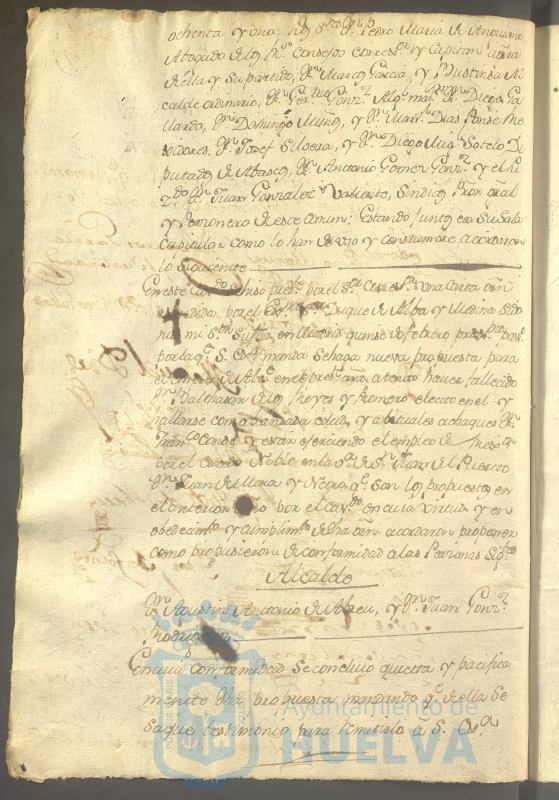 ochenta y uno: los S.res D.n Pedro Maria de Anquiano
Abogado de los R.s Consejos Corress.r y Capitan aGrra
de ella y su partido, D.n Marcos Garcia, y D.n Justinia Al
calde ordinario, D.n Ger.mo Gonz.z Alg.l ma.or D.n Diego Ga
llardo, D.n Domingo Muñoz, y D.n Juan Dias Ponse Re
vidores, D.n Josef Silvera, y D.n Diego Luis Sotelo Di
putados de Abastos, D.n Antonio Gomez Gonz.z y el Li
z.do D.n Juan Gonzalez Valiente, Sindico Pror gral
y Personero de este comun; Estando juntos en su Sala
Capitular como lo han de uso y constumbre, acordaron
lo siguiente
En este Cav.do en
pedida por el Ex.mo S.or Duque de Alba y Medina Sido
nia mi S.or Su fha en Madrid quinse de febrero
por la q.e S. Ex.a manda se haga nueva propuesta para
el empleo de Alc.e en el pres.te año atento haver fallecido
D.n Balthasar de los Reyes y Romero electo en el y
hallarse con abanzada edad, y abituales achaques D.n
Fran.co Conde y estar exerciendo el empleo de Rex.or
por el estado Noble en la v.a de S.n Juan del Puerto
D.n Juan de Mora y Negro q.e son los propuestos en
el anterior año por el cav.do en cuia virtud y en
obedecim.to y cumplim.to de dha orn. acordaron proponer
como propusieron de conformidad a las Personas sig.tes
Alcalde
D.n Agustin Antonio de Abreu, y D.n Juan Gonz.z
Rodriguez
En cuia conformidad se concluio quieta y pacifica
mente dha propuesta mandando q.e de ella se
saque testimonio para remitirlo à S. Ex.a
Ayuntamiento de
HUELVA